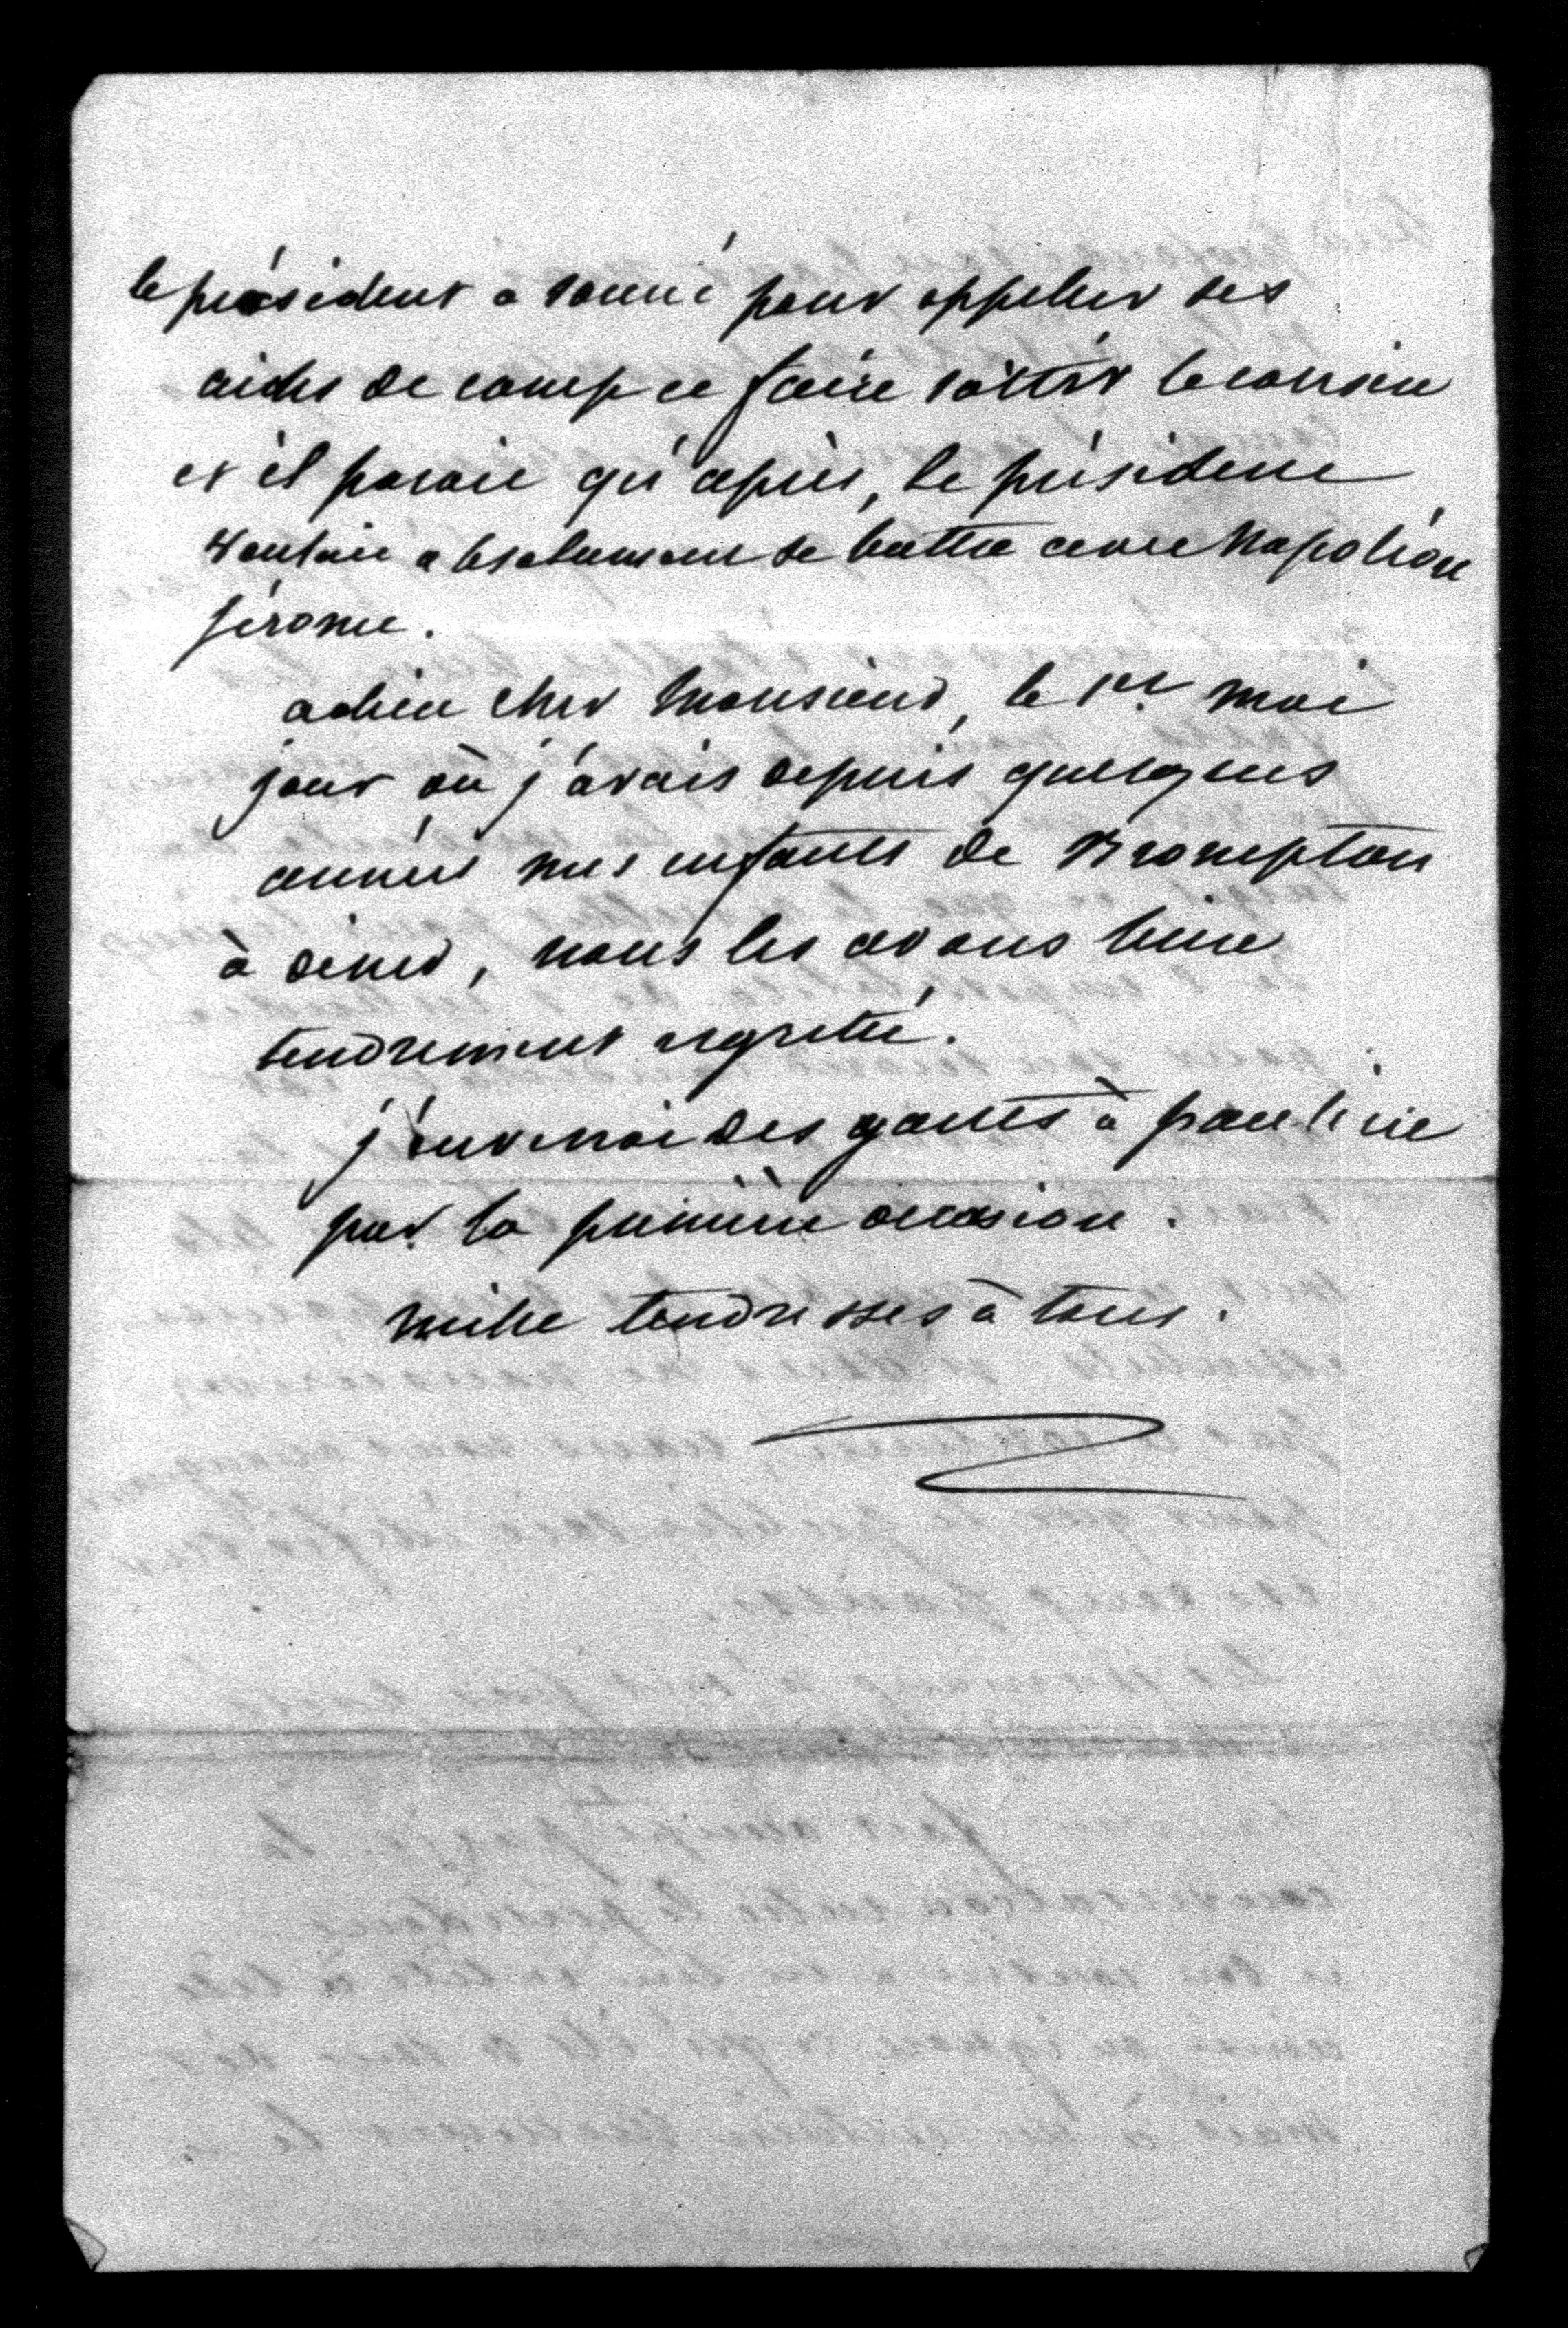 le président a sonné pour appeller ses
aides de camp et faire sortir le cousin
et il parait qu'après, le président
voulait absolument se battre avec Napoléon
Jérome.
adieu cher Monsieur, le 1er mai
jour où j'avais depuis quelques
années mes enfants de Brompton
à diner, nous les avons bien
tendrement regretté.
j'enverrai des gants à pauline
par la première occasion.
mille tendresses à tous.